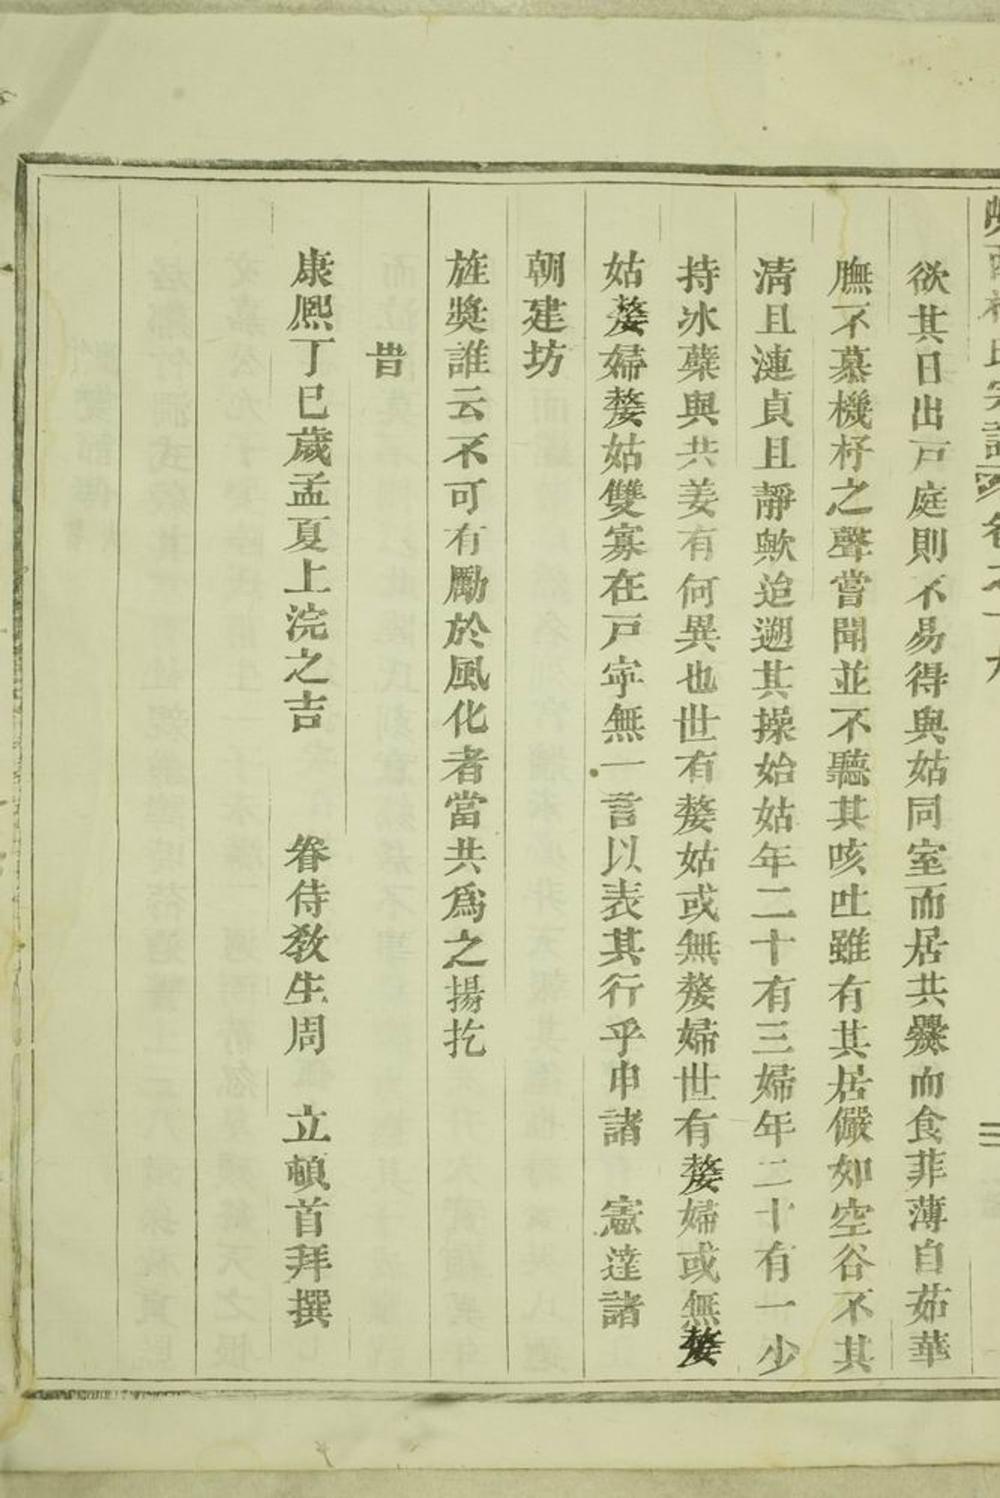 氏宗譜 卷之十九
欲其日出戸庭則不易得與姑同室而居共爨而食菲薄自茹華
膴不慕機杼之聲嘗聞並不聽其咳吐雖有其居儼如空谷不其
清且漣貞且靜歟迨遡其操始姑年二十有三婦年二十有一少
持冰蘗與共姜有何異也世有嫠姑或無嫠婦世有嫠婦或無嫠
姑嫠婦嫠姑雙寡在戸寜無一言以表其行乎申諸 憲達諸
朝建坊
旌奬誰云不可有勵於風化者當共爲之揚扢
旹
康熈丁巳歲孟夏上浣之吉 眷侍敎生周 立頓首拜撰